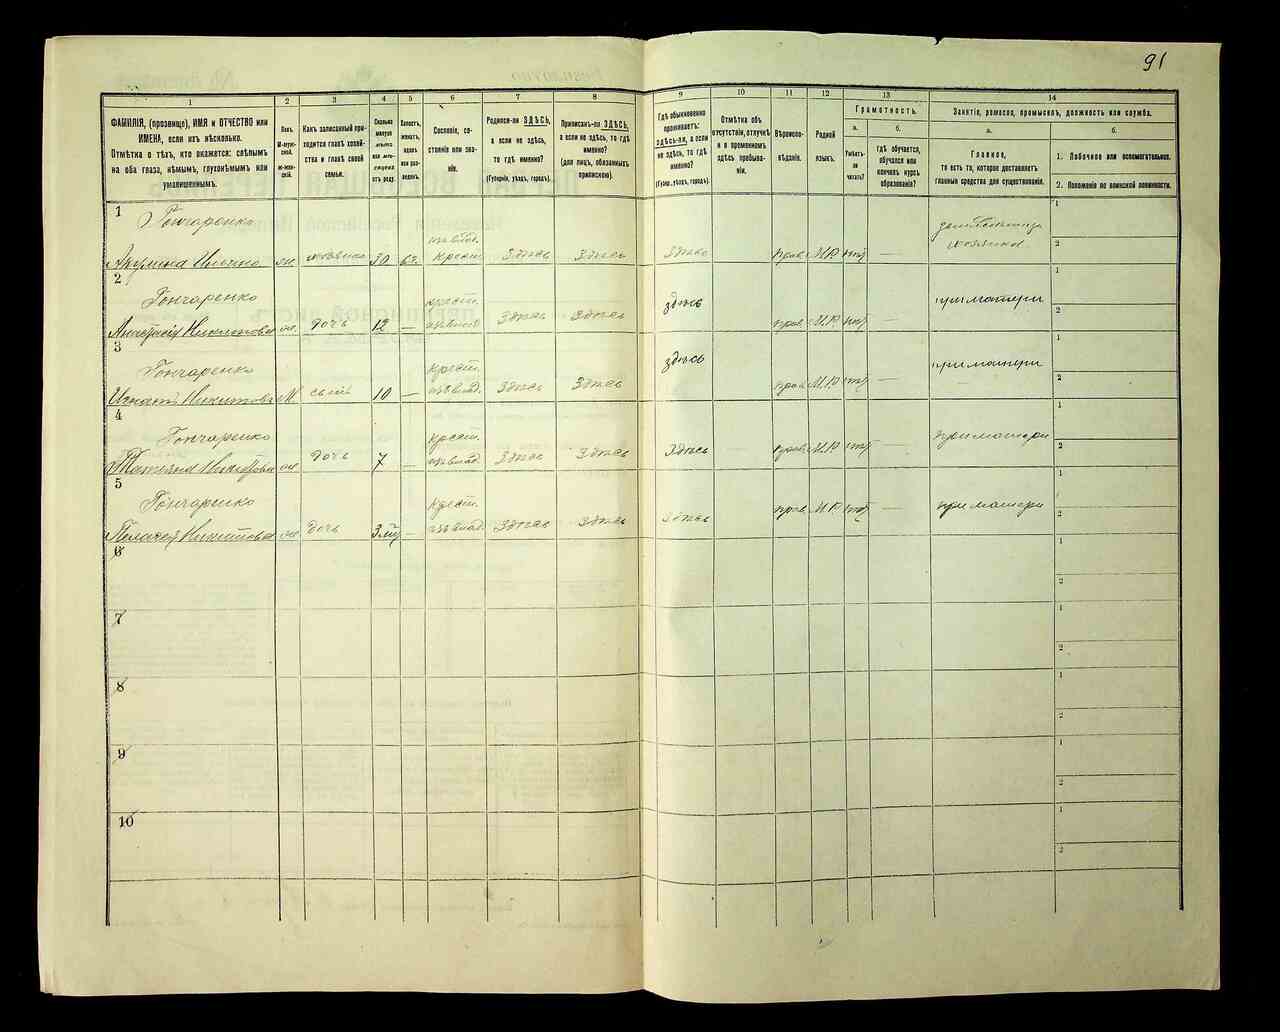 91
1
2
3
4
5
6
7
8
9
10
11
12
13
14
ФАМИЛІЯ, (прозвище), ИМЯ и ОТЧЕСТВО или
ИМЕНА, если ихъ нѣсколько.
Отмѣтка о тѣхъ, кто окажется: слѣпымъ
на оба глаза, нѣмымъ, глухонѣмымъ или
умалишеннымъ.
Полъ.
М-мужс-
кой.
Ж-женс-
кій.
Какъ записанный при-
ходится главѣ хозяй-
ства и главѣ своей
семьи.
Сколько
минуло
лѣтъ
или мѣс.
отъ роду.
Холостъ,
женатъ,
вдовъ
или раз-
веденъ.
Сословіе, со-
стояніе или зва-
ніе.
Родился-ли ЗДѢСЬ,
а если не здѣсь,
то гдѣ именно?
(Губернія, уѣздъ, городъ).
Приписанъ-ли ЗДѢСЬ,
а если не здѣсь, то гдѣ
именно?
(для лицъ, обязанныхъ
припискою).
Гдѣ обыкновенно
проживаетъ:
здѣсь-ли, а если
не здѣсь, то гдѣ
именно?
(Губер., уѣздъ, городъ).
Отмѣтка объ
отсутствіи, отлучкѣ
и о временномъ
здѣсь пребыва-
ніи.
Вѣроиспо-
вѣданіе.
Родной
языкъ.
Грамотность.
а.
б.
Умѣетъ-
ли
читать?
гдѣ обучается,
обучался или
кончилъ курсъ
образованія?
Занятіе, ремесло, промыселъ, должность или служба.
а.
б.
Главное,
то есть то, которое доставляетъ
главныя средства для существованія.
1. Побочное или вспомогательное.
2. Положеніе по воинской повинности.
1
Гончаренко
хозяйка 30 Здѣсь Здѣсь Здѣсь прав М.Р нѣт —
2
Гончаренко
Анастасія Никитова ж. дочь 12 — крест. Здѣсь Здѣсь здѣсь прав М.Р нѣт — при матери
3
Гончаренко
Игнатъ Никитовъ М. сынъ 10 — крест. Здѣсь Здѣсь здѣсь прав М.Р нѣт — при матери
4
Гончаренко
Татіяна Никитова ж. дочь 7 — крест. Здѣсь Здѣсь Здѣсь прав М.Р нѣт — при матери
5
Гончаренко
Никитова ж. дочь — крест. Здѣсь Здѣсь Здѣсь прав М.Р нѣт — при матери
6
7
8
9
10